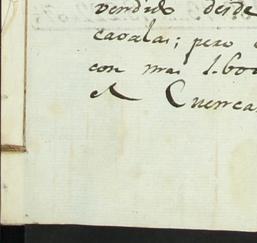 vendido desde
cavalas; pero
con mas
A Cuenca